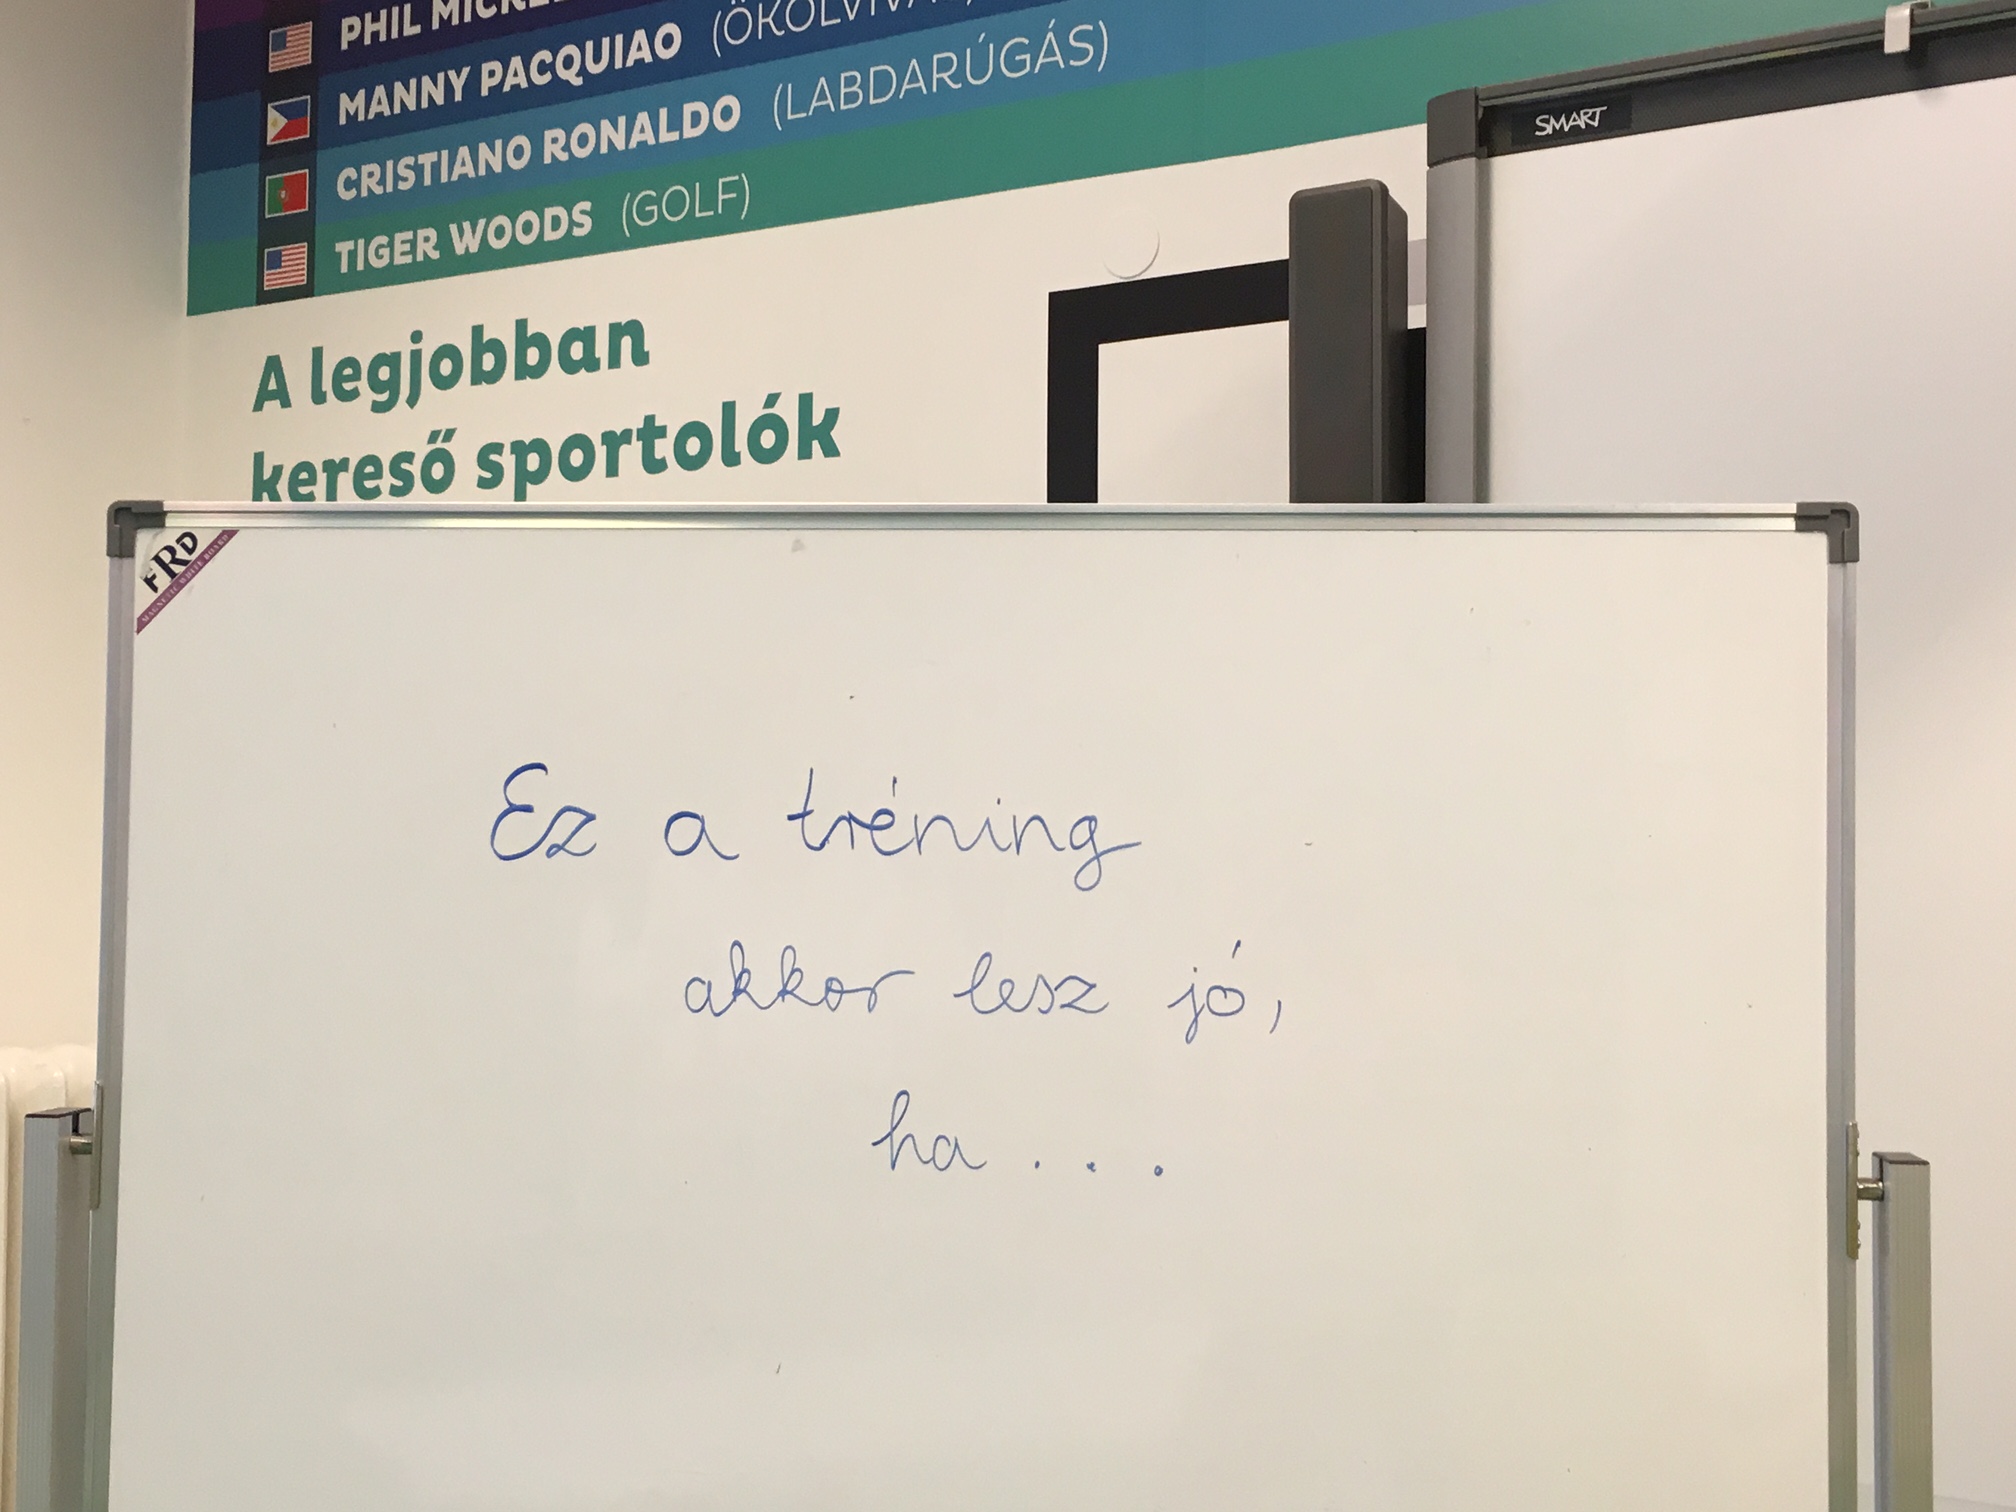 PHIL
MANNY PACQUIAO
CRISTIANO RONALDO (LABDARÚGÁS)
TIGER WOODS (GOLF)
A legjobban
kereső sportolók
SMART
FRD
MAGNETIC WHITE BOARD
Ez a tréning
akkor lesz jó,
ha . . .